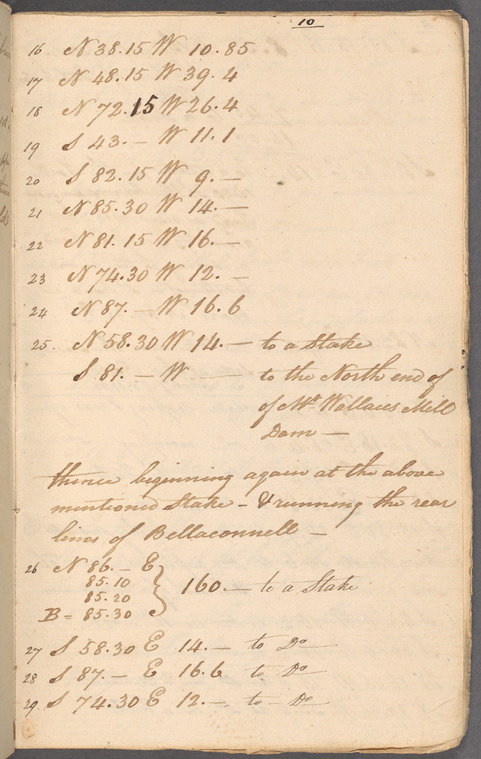 10
16 N 38.15 W 10.85
17 N 48.15 W 39.4
18 N 72.15 W 26.4
19 S 43.— W 11.1
20 S 82.15 W 9.—
21 N 85.30 W 14.—
22 N 81.15 W 16.—
23 N 74.30 W 12.—
24 N 87.— W 16.6
25. N 58.30 W 14.— to a Stake
S 81.— W —— to the North end of
of Mr Wallaces Mill
Dam —
thence beginning again at the above
mentioned Stake — & running the rear
lines of Bellaconnell —
26 N 86.— E
85.10
85.20 } 160.— to a Stake
B = 85.30
27 S 58.30 E 14.— to Do
28 S 87.— E 16.6 to Do
29. S 74.30 E 12.— to — Do